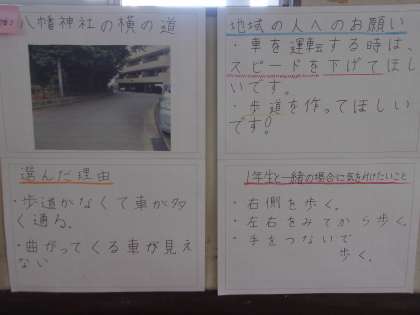 八幡神社の横の道
選んだ理由
・歩道がなくて車が多
く通る。
・曲がってくる車が見え
ない
地域の人へのお願い
・車を運転する時は、
スピードを下げてほし
いです。
・歩道を作ってほしい
です!
1年生と一緒の場合に気を付けたいこと
・右側を歩く。
・左右をみてから歩く。
・手をつないで
歩く。